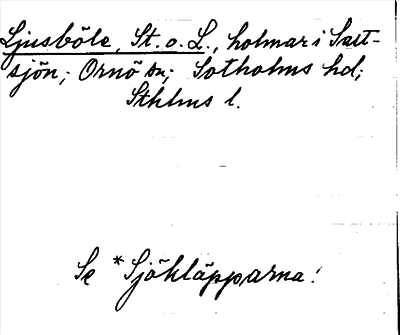 Ljusböte, St. o. L., holmar i Salt-
sjön; Ornö sn; Sotholms hd;
Sthlms l.
Se *Sjökläpparna!